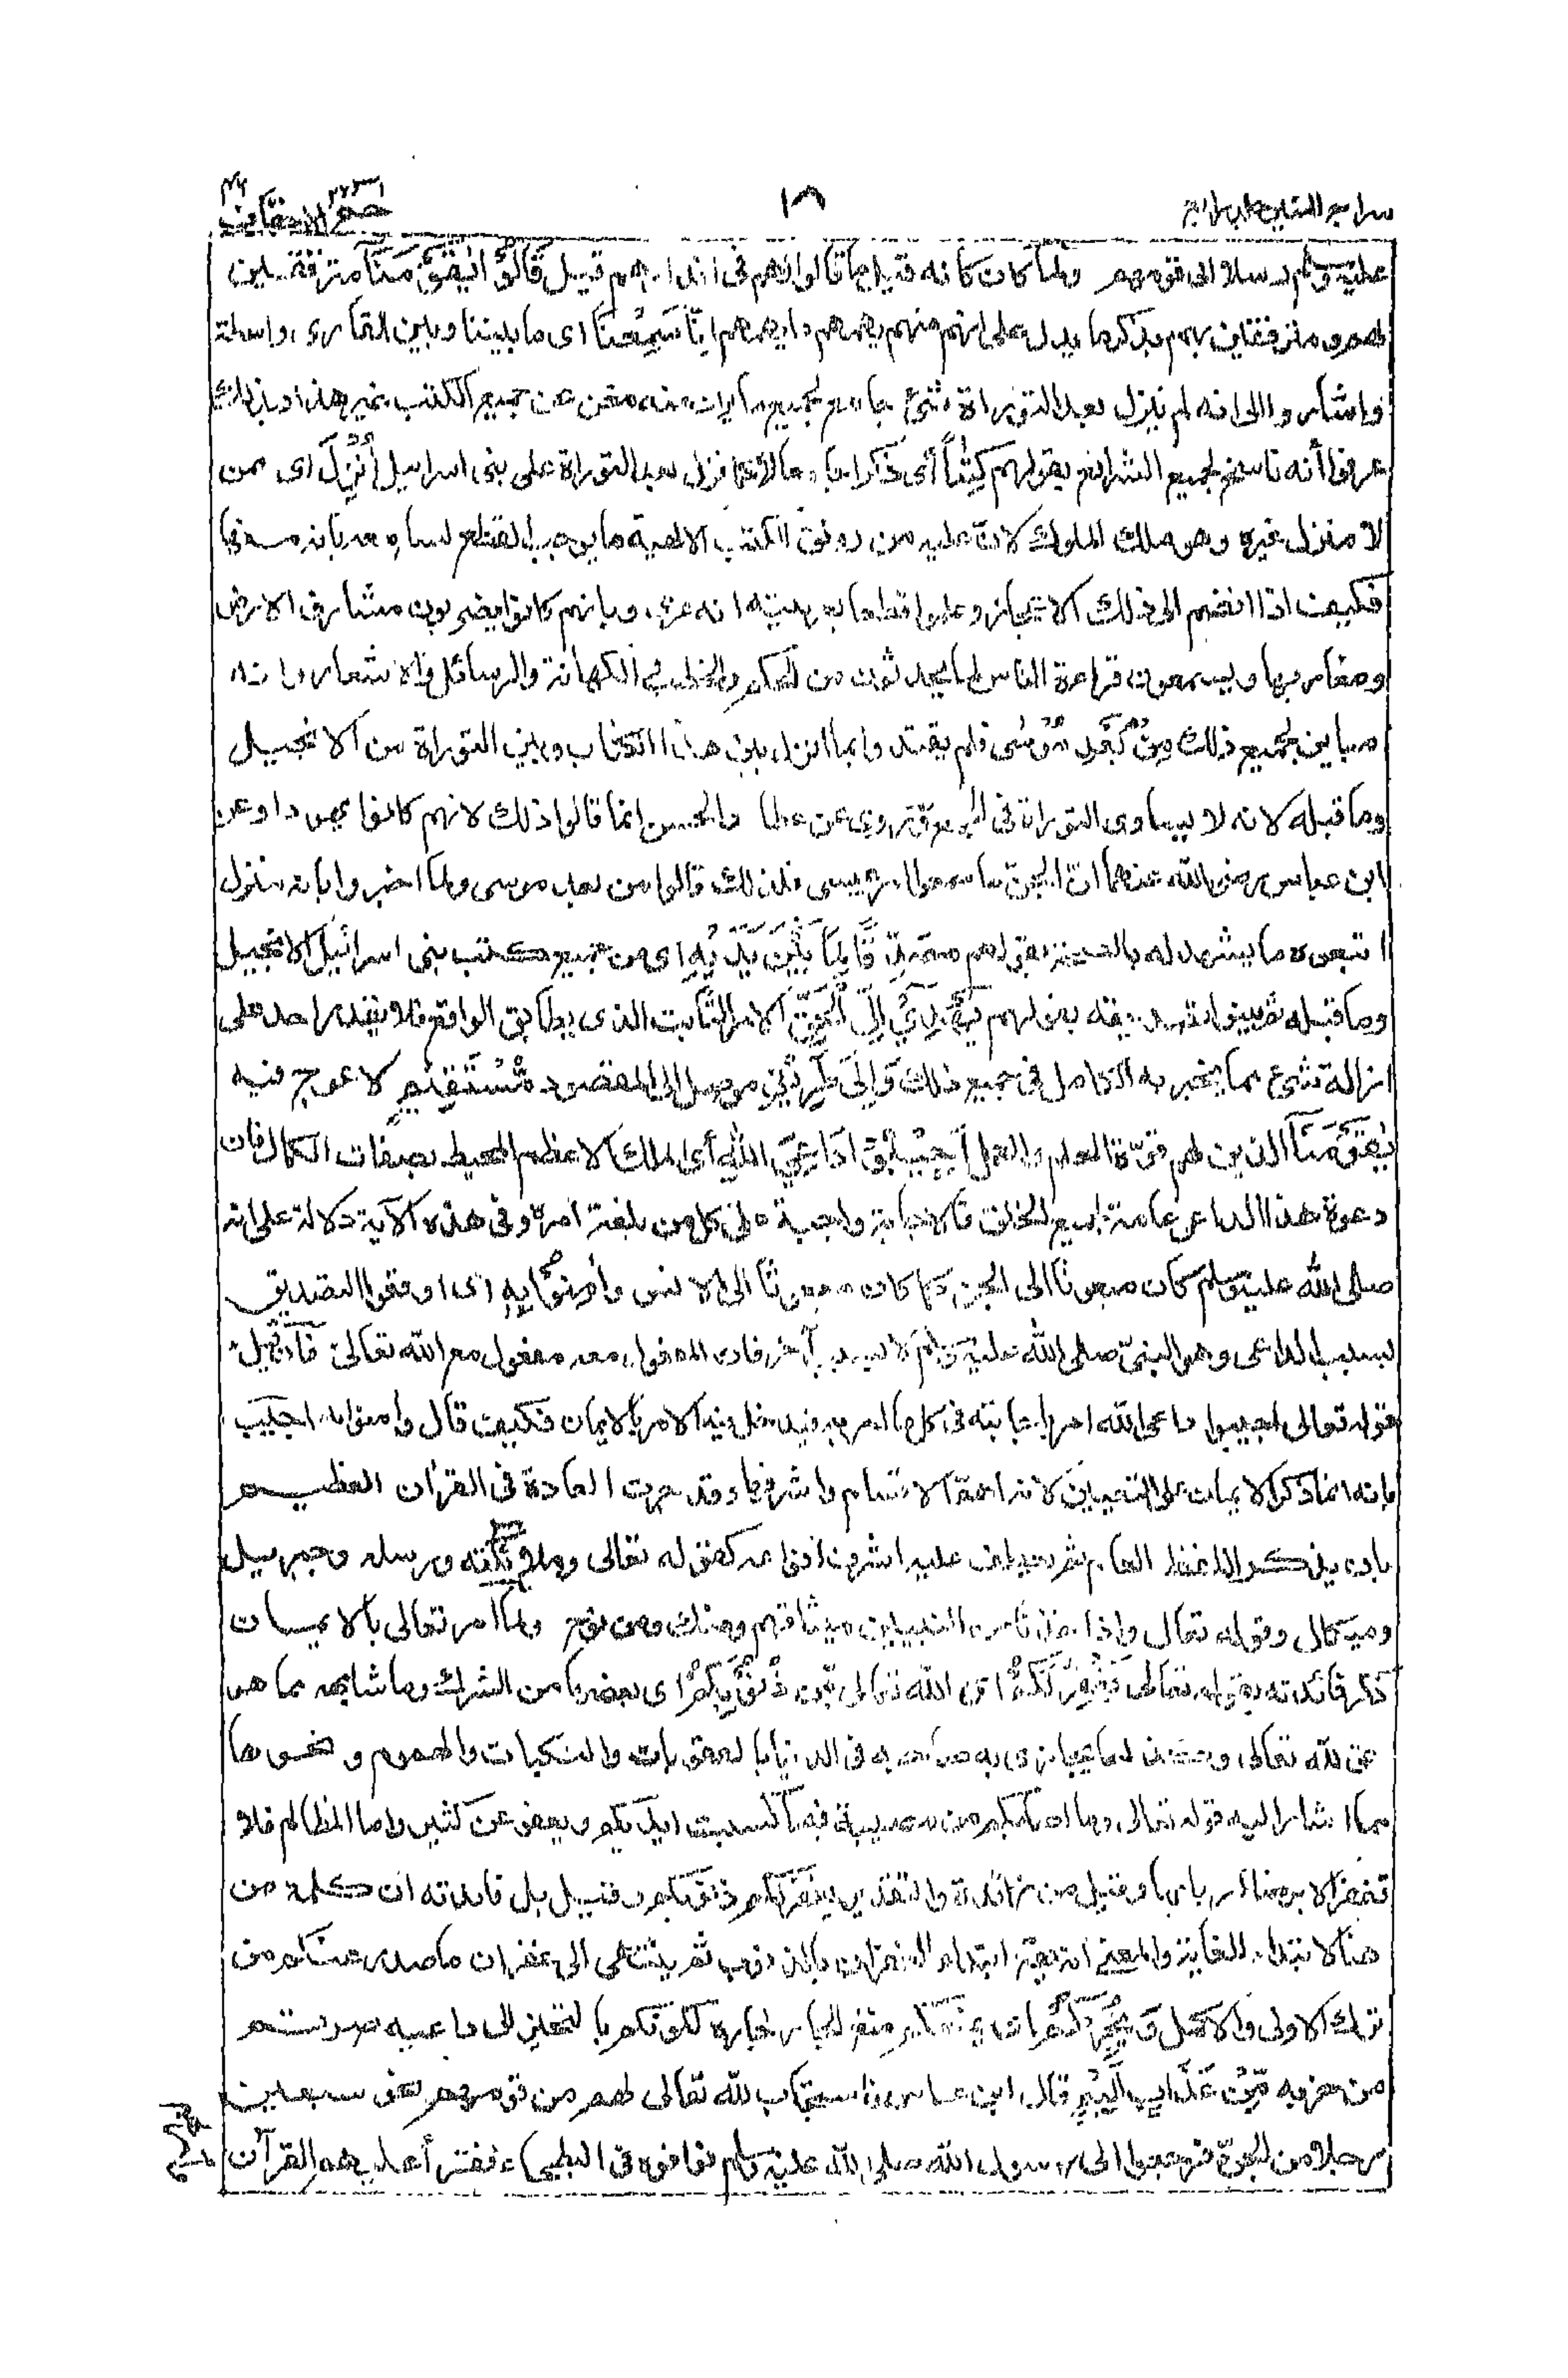 ١٨
عليه وسلم رسلا الى قومهم ولما كان كأنه قيل ما قالوا لهم فى انذارهم قيل قَالُوْا يٰقَوْمَنَا مترققين
لهم ومترفقين بهم بذكر ما يدل على انهم منهم يهمهم ما يهمهم اِنَّا سَمِعْنَا اى ما بيننا وبين القارى واسطة
واشاروا الى انه لم ينزل بعد التوراة شئ جامع لجميع ما يراد منه مغن عن جميع الكتب غير هذا وبذلك
عرفوا أنه ناسخ لجميع الشرائع بقولهم كِتٰبًا أى ذكرا جامعا لا كما نزل بعد التوراة على بنى اسرائيل اُنْزِلَ اى ممن
لا منزل غيره وهو ملك الملوك لان عليه من رونق الكتب الالهية ما يوجب القطع لسامعه بانه منها
فكيف اذا انضم الى ذلك الاعجاز وعلموا قطعا بعربيته انه عربى وبانهم كانوا يضربون مشارق الارض
ومغاربها ويسمعون قراءة الناس لما يحدثون من الحكم والخطب والكهانة والرسائل والاشعار وانه
مباين لجميع ذلك مِنْ بَعْدِ مُوْسٰى فلم يعتدوا بما انزل بين هذا الكتاب وبين التوراة من الانجيل
وما قبله لانه لا يساوى التوراة فى الجمع روى عن عطاء والحسن انما قالوا ذلك لانهم كانوا يهودا وعن
ابن عباس رضى الله عنهما انّ الجنّ ما سمعوا امر عيسى فلذلك قالوا من بعد موسى ولما اخبروا بانه منزل
اتبعوه ما يشهد له بالصحة بقولهم مُصَدِّقًا لِّمَا بَيْنَ يَدَيْهِ اى من جميع كتب بنى اسرائيل الانجيل
وما قبله ثم بينوا تصديقه بقولهم يَهْدِيْٓ اِلَى الْحَقِّ الامر الثابت الذى يطابق الواقع فلا يقدر احد على
ازالة شئ مما يخبر به الكامل فى جميع ذلك وَاِلٰى طَرِيْقٍ موصل الى المقصود مُّسْتَقِيْمٍ لا عوج فيه
يٰقَوْمَنَآ الذين لهم قوّة العلم والعمل اَجِيْبُوْا دَاعِيَ اللّٰهِ أى الملك الاعظم المحيط بصفات الكمال فان
دعوة هذا الداعى عامة لجميع الخلق فالاجابة واجبة على كل من بلغته امره وفى هذه الآية دلالة على انه
صلى الله عليه وسلم كان مبعوثا الى الجن كما كان مبعوثا الى الانس وَاٰمِنُوْا بِهٖ اى اوقعوا التصديق
بسبب الداعى وهو النبىّ صلى الله عليه وسلم لا بسبب آخر فان المفعول معه مفعول مع الله تعالى فان قيل
قوله تعالى اجيبوا داعى الله امر باجابته فى كل ما امر به فيدخل فيه الامر بالايمان فكيف قال وامنوا به اجيب
بانه انما ذكر الايمان على التعيين لانه اهمّ الاقسام واشرفها وقد جرت العادة فى القرآن العظيم
بان يذكر اللفظ العام ثم يعطف عليه اشرف انواعه كقوله تعالى وملائكته ورسله وجبريل
وميكال وقوله تعالى واذ اخذنا من النبيين ميثاقهم ومنك ومن نوح ولما امر تعالى بالايمان
ذكر فائدته بقوله تعالى يَغْفِرْ لَكُمْ اى الله تعالى مِّنْ ذُنُوْبِكُمْ اى بعضها من الشرك وما شابهه مما هو
حق لله تعالى وكذلك ما يجازى به صاحبه فى الدنيا بالعقوبات والنكبات والهموم ونحوها
مما اشار اليه قوله تعالى وما اصابكم من مصيبة فبما كسبت ايديكم ويعفو عن كثير واما المظالم فلا
تغفر الا برضا اربابها وقيل من زائدة والتقدير يغفر لكم ذنوبكم وقيل بل فائدته ان كلمة من
هنا لابتداء الغاية والمعنى انه يقع ابتداء الغفران بالذنوب ثم ينتهى الى غفران ما صدر عنكم من
ترك الاولى والاكمل وَيُجِرْكُمْ اى يمنعكم منع الجار لجاره لكونكم بالتحيز الى داعيه صرتم
من حزبه مِّنْ عَذَابٍ اَلِيْمٍ قال ابن عباس فاستجاب لله تعالى لهم من قومهم نحو سبعين
رجلا من الجنّ فرجعوا الى رسول الله صلى الله عليه وسلم فوافوه فى البطحاء فقرأ عليهم القرآن